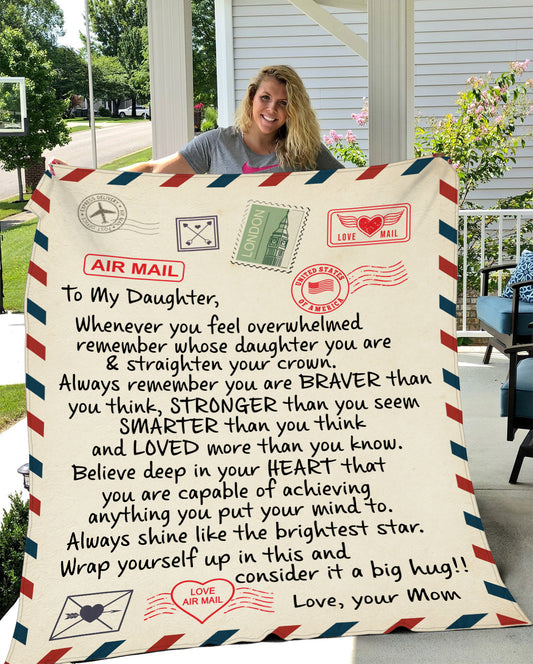 EXPRESS DELIVERY
LONDON
LOVE MAIL
AIR MAIL
UNITED STATES
OF AMERICA
To My Daughter,
Whenever you feel overwhelmed
remember whose daughter you are
& straighten your crown.
Always remember you are BRAVER than
you think, STRONGER than you seem
SMARTER than you think
and LOVED more than you know.
Believe deep in your HEART that
you are capable of achieving
anything you put your mind to.
Always shine like the brightest star.
Wrap yourself up in this and
consider it a big hug!!
LOVE
AIR MAIL
Love, your Mom